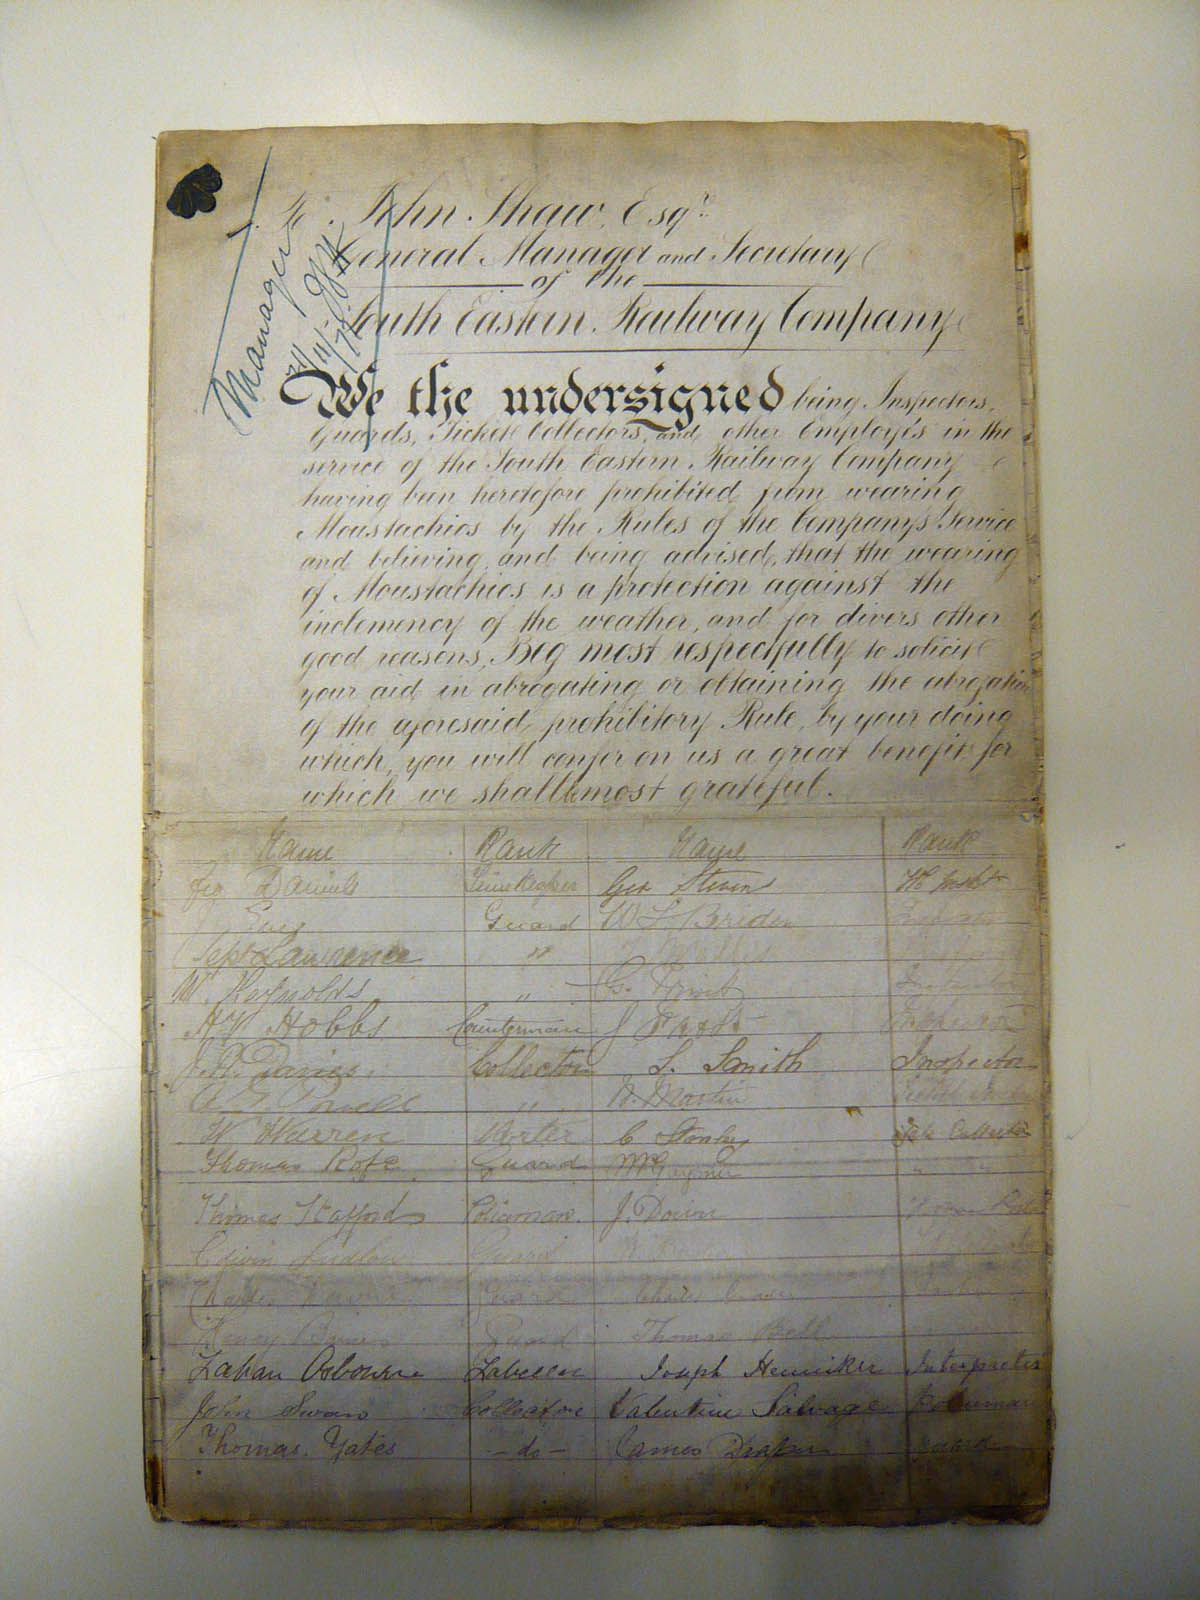 To John Shaw, Esqr.
General Manager and Secretary
of the
South Eastern Railway Company
Manager
We the undersigned being Inspectors,
Guards, Ticket Collectors, and other Employés in the
service of the South Eastern Railway Company
having been heretofore prohibited from wearing
Moustachios by the Rules of the Company's Service
and believing, and being advised, that the wearing
of Moustachios is a protection against the
inclemency of the weather, and for divers other
good reasons, Beg most respectfully to solicit
your aid in abrogating or obtaining the abrogation
of the aforesaid prohibitory Rule, by your doing
which, you will confer on us a great benefit for
which we shall be most grateful.
Name Rank Name Rank
Daniels Timekeeper Geo Stevens
Guard W
Septs Lawrence "
W. Reynolds " G.
H Hobbs Counterman J Frost
Davies Collector S. Smith Inspector
Powell " W. Martin
W Warren Porter C Stanley
Thomas Rofe Guard " "
Thomas Stafford Policeman. J. Down
Edwin Ludlow Guard
Charles Guard Charles
Henry Guard Thomas Bell
Osbourne Labeller Joseph Henniker Interpreter
John Swan Collector Valentine Salvage Policeman
Thomas Yates - do - James Draper Guard